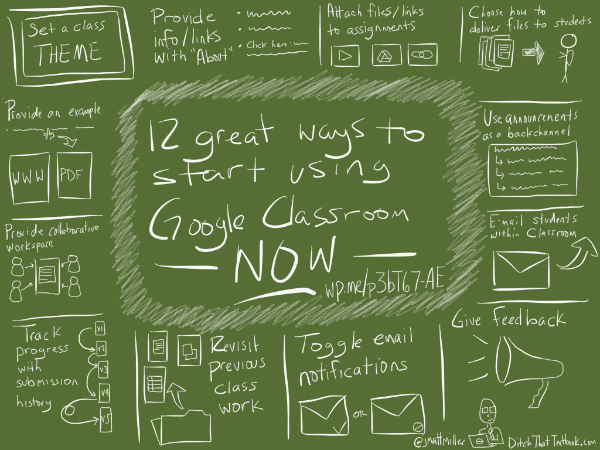 Set a class
THEME
Provide
info/links
with "About"
Click here:
Attach files/links
to assignments
Choose how to
deliver files to students
Provide an example
WWW
PDF
12 great ways to
start using
Google Classroom
NOW
wp.me/p3bT67-AE
Use announcements
as a backchannel
Provide collaborative
workspace
E-mail students
within Classroom
Track
progress
with
submission
history
v1
v2
v3
v4
v5
Revisit
previous
class
work
Toggle email
notifications
OR
Give feedback
@jmattmiller
DitchThatTextbook.com